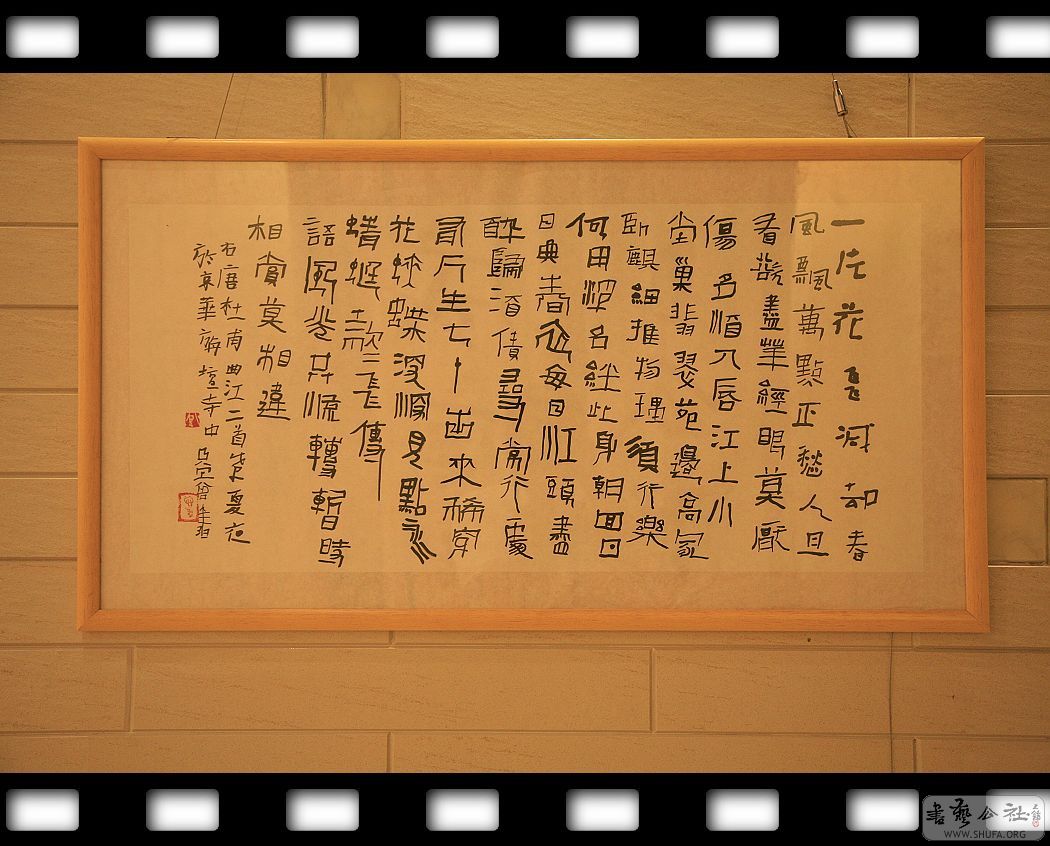 一片花飛減却春
風飄萬點正愁人且
看欲盡華經眼莫厭
傷多酒入唇江上小
堂巢翡翠苑邊高冢
卧麒細推物理須行樂
何用浮名絆此身朝回日
日典春衣每日江頭盡
醉歸酒債尋常行處
有人生七十古來稀穿
花蛺蝶深深見點水
蜻蜓款二飛傳
語風光共流轉暫時
相賞莫相違
右唐杜甫曲江二首夏夜
於京華壇寺中
書藝公社
WWW.SHUFA.ORG